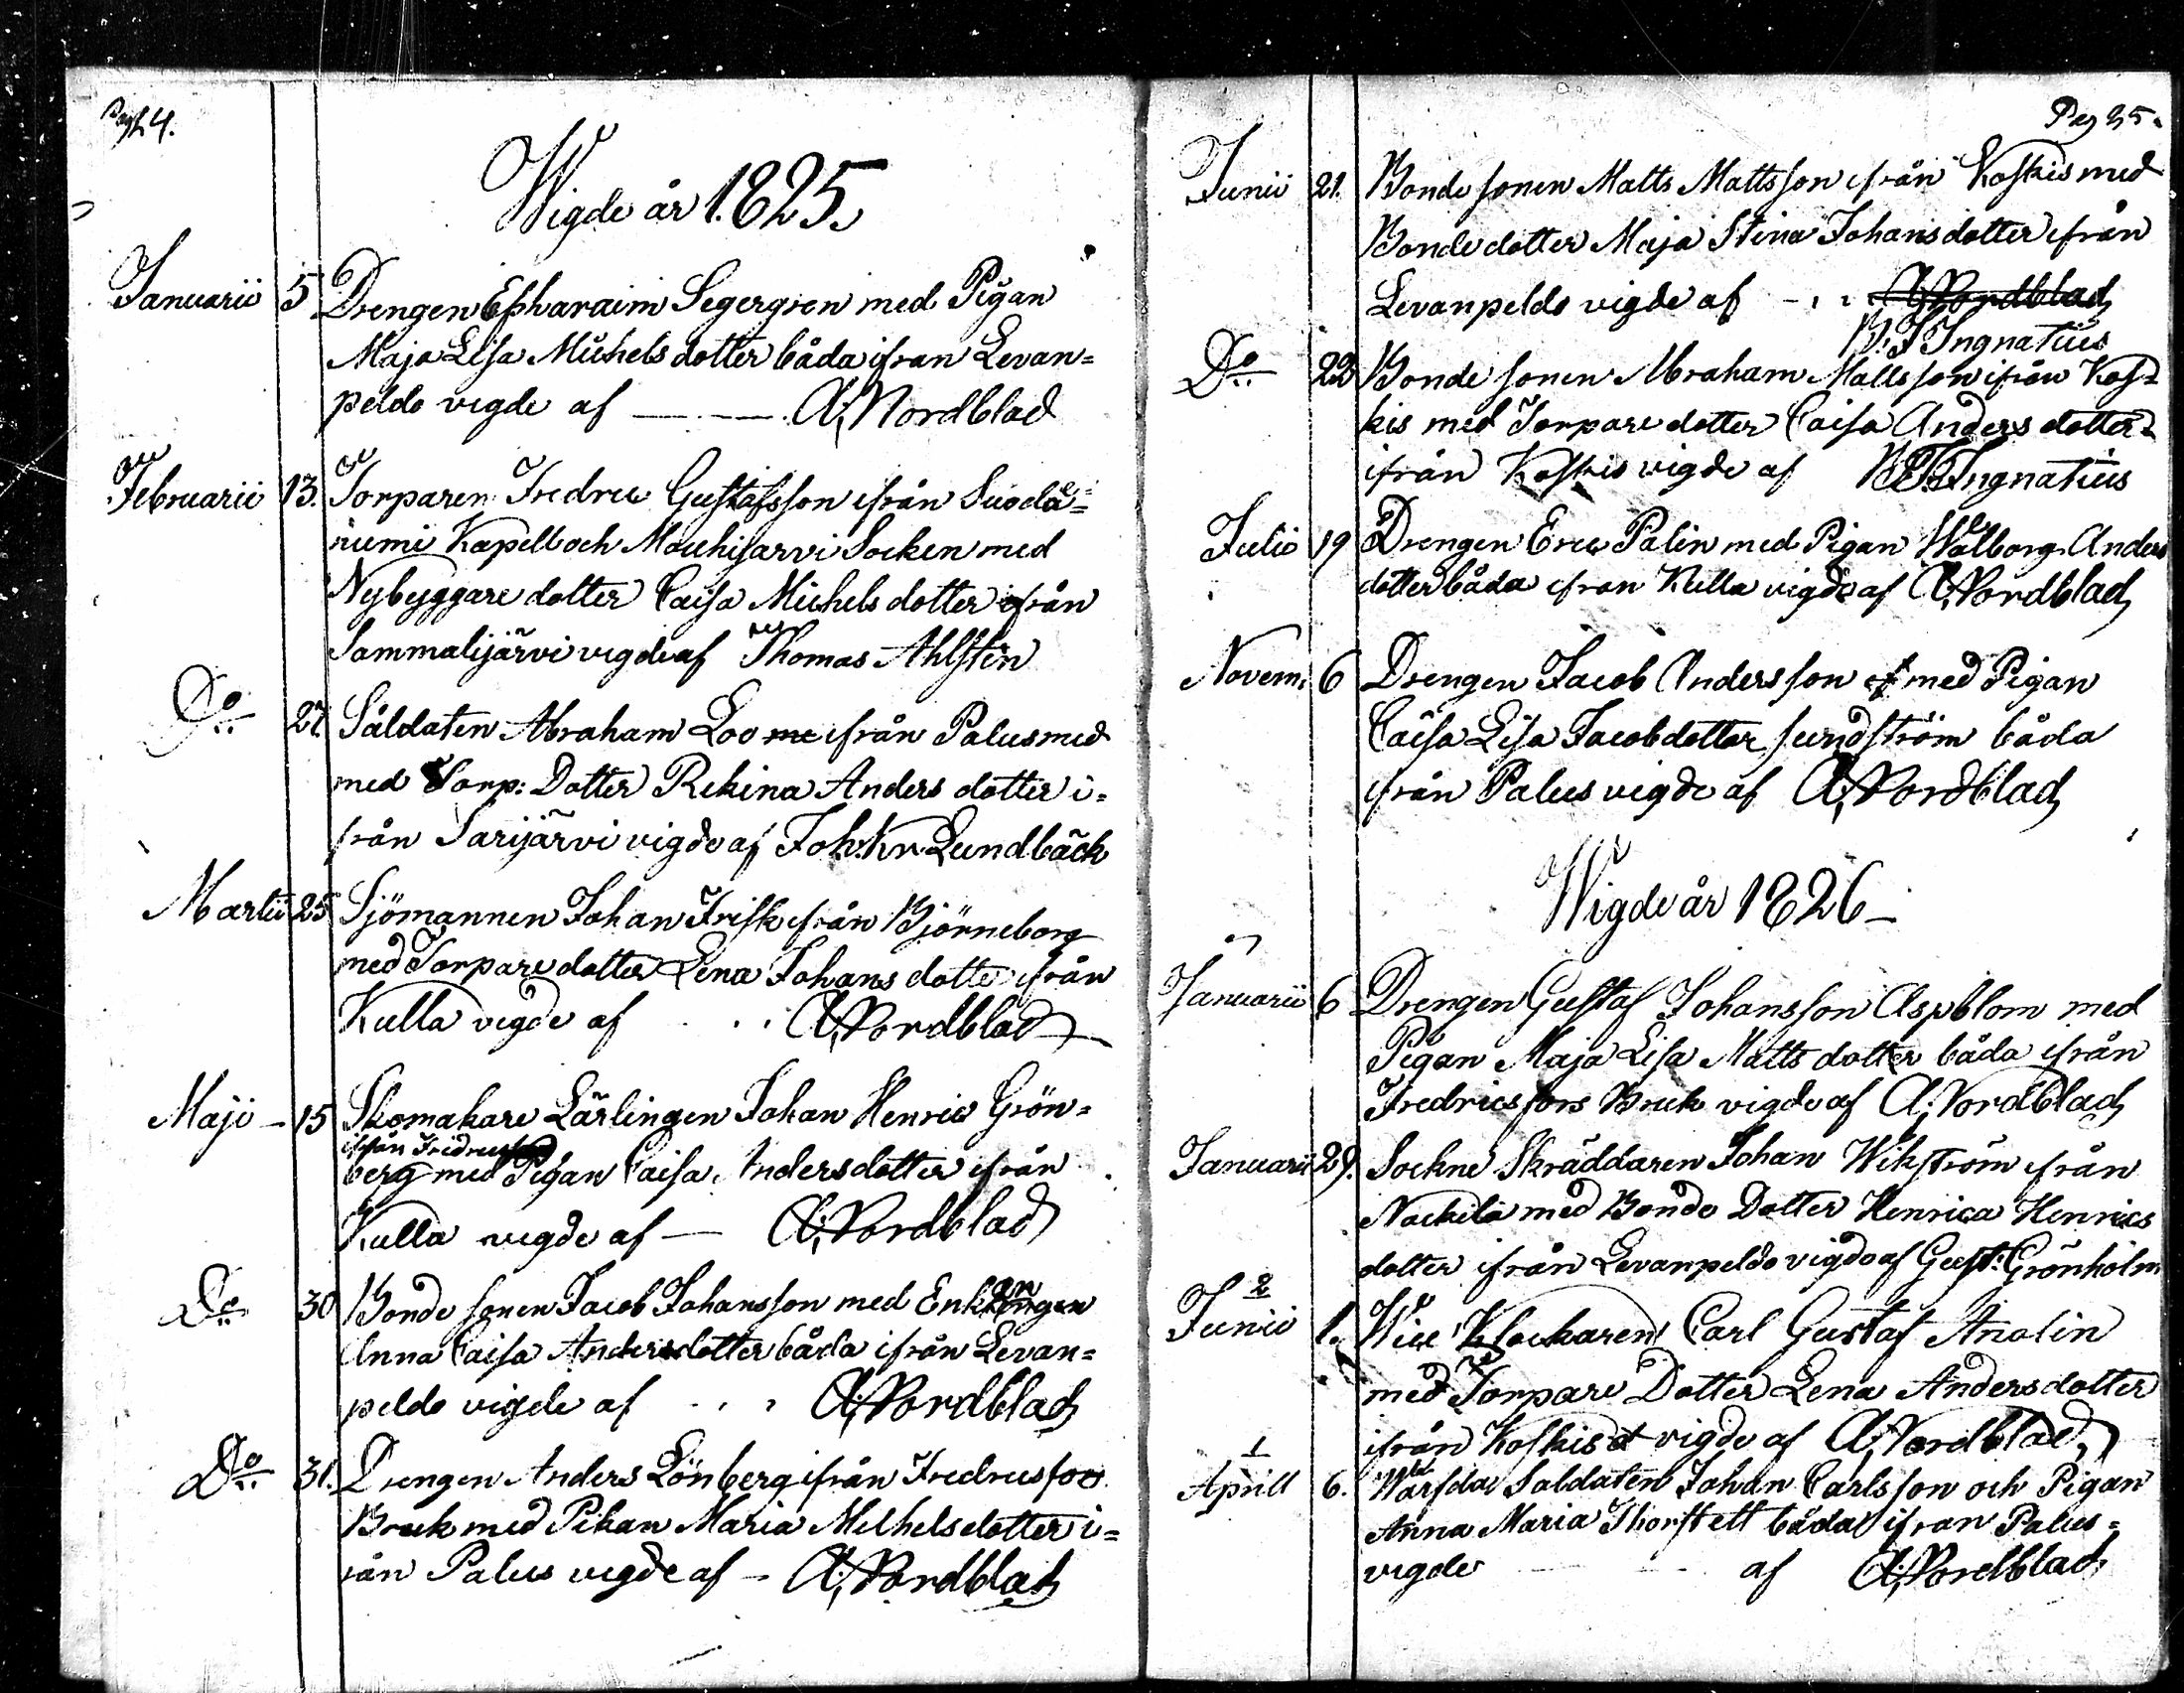 Pag 24.
Wigde år 1825.
Januarii 5 Drengen Epharaim Segergren med Pigan
Maja Lisa Michels dotter båda ifran Levan=
peldo vigde af — — A; Nordblad
Februarii 13. Torparen Fredric Gustafsson ifrån Suoda=
niemi Kapell och Mouhijarvi Socken med
Nybyggare dotter Caisa Michels dotter ifrån
Sammalijärvi vigde af Thomas Ahlsten
Do 27. Såldaten Abraham Loo me ifrån Palus med
med Torp: Dotter Rekina Anders dotter i=
från Sarijärvi vigde af Joh: Kr. Lundbäck
Martii 25 Sjömannen Johan Frisk ifrån Björneborg
med Torpare dotter Lena Johans dotter ifrån
Kulla vigde af . . . A; Nordblad
Maji – 15 Skomakare Lärlingen Johan Henric Grön=
ifrån
berg med Pigan Caisa Andersdotter ifrån
Kulla vigde af — A; Nordblad
Do 30 Bonde sonen Jacob Johansson med Enk
Anna Caisa Andersdotter båda ifrån Levan=
peldo vigde af . . . A; Nordblad
Do 31. Drengen Anders Lönberg ifrån Fredricsfors
Bruk med Pikan Maria Michelsdotter i=
rån Palus vigde af – A; Nordblad
Pag 25.
Junii 21. Bonde sonen Matts Mattsson ifrån Koskis med
Bonde dotter Maja Stina Johansdotter ifrån
Levanpeldo vigde af – . . A; Nordblad
B. J Ingnatius
Do 22 Bonde sonen Abraham Mattsson ifrån Kos=
kis med Torpare dotter Caisa Anders dotter
ifrån Koskis vigde af B J Ingnatius
Julii 19 Drengen Eric Palin med Pigan Walborg Anders
dotter båda ifran Kulla vigde af A; Nordblad
Novem: 6 Drengen Jacob Andersson med Pigan
Caisa Lisa Jacobdotter sundström båda
ifrån Palus vigde af A; Nordblad
Wigde år 1826 –
Januarii 6 Drengen Gustaf Johansson Aspblom med
Pigan Maja Lisa Matts dotter båda ifrån
Fredricsfors Bruk vigde af A; Nordblad
Januarii 29. Sockne Skräddaren Johan Wikström ifrån
Nackila med Bonde Dotter Henrica Henrics
dotter ifrån Levanpeldo vigde af Gust: Grönholm
2
Junii 1. Wice Klockaren Carl Gustaf Analin
med Torpare Dotter Lena Andersdotter
ifrån Koskis vigde af A; Nordblad
1
Aprill 6. Soldaten Johan Carlsson och Pigan
Anna Maria Thorstett båda ifran Palus=
vigde af A; Nordblad